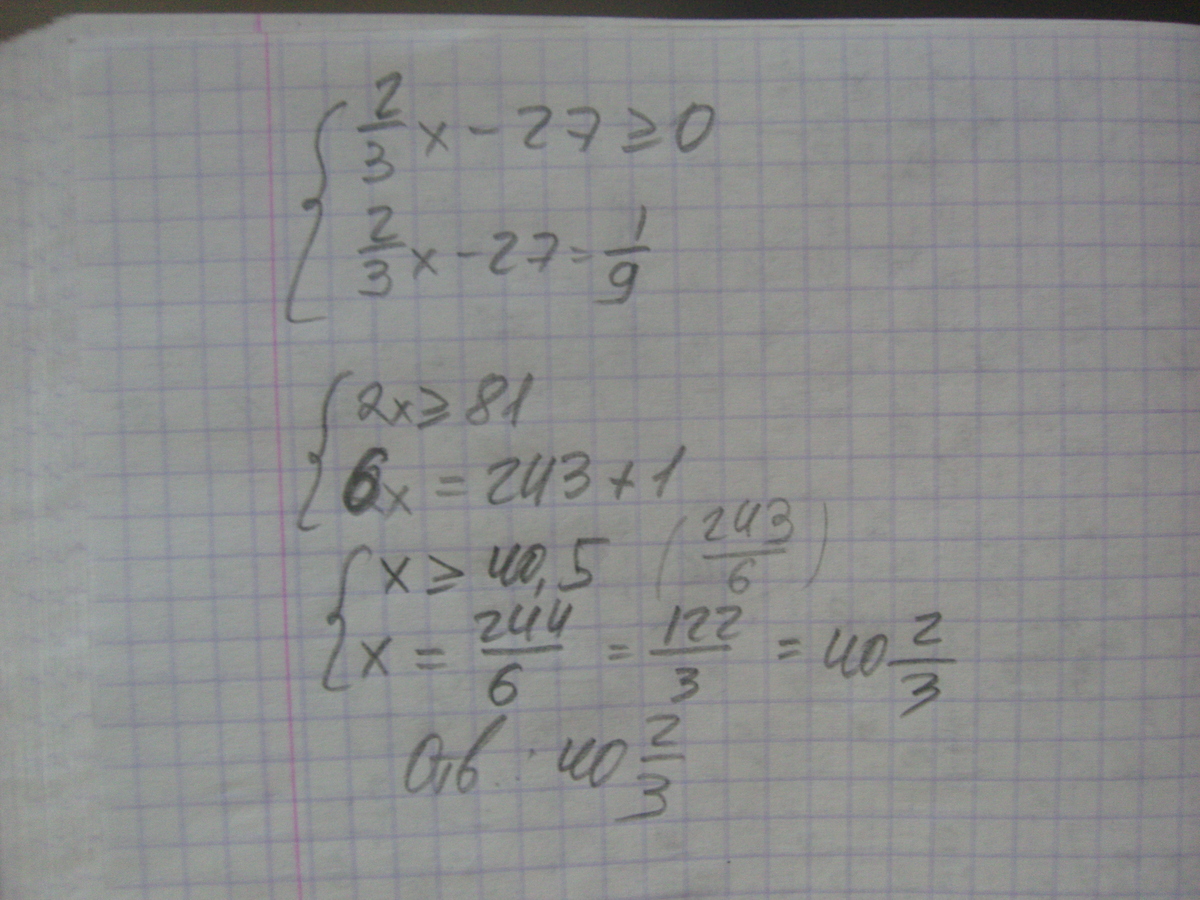 2/3 x - 27 ≥ 0
2/3 x - 27 = 1/9
2x ≥ 81
6x = 243 + 1
x ≥ 40,5 (243/6)
x = 244/6 = 122/3 = 40 2/3
Отв: 40 2/3